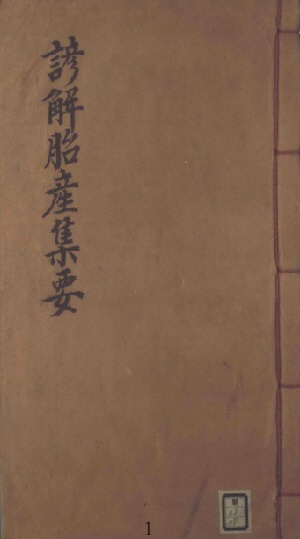 諺解胎産集要
1